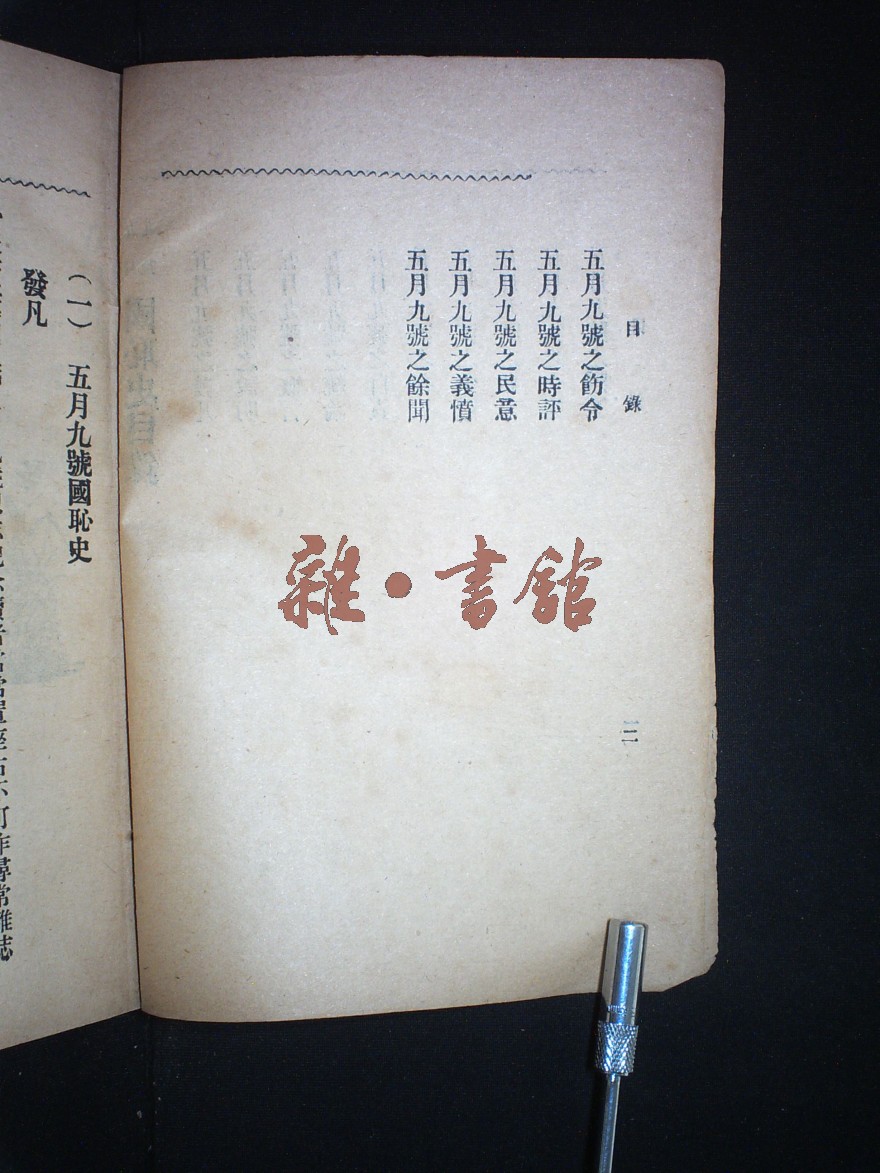 目錄
五月九號之飭令
五月九號之時評
五月九號之民意
五月九號之義憤
五月九號之餘聞
二
(一) 五月九號國恥史
發凡
座右不可作尋常雜誌
雜•書館